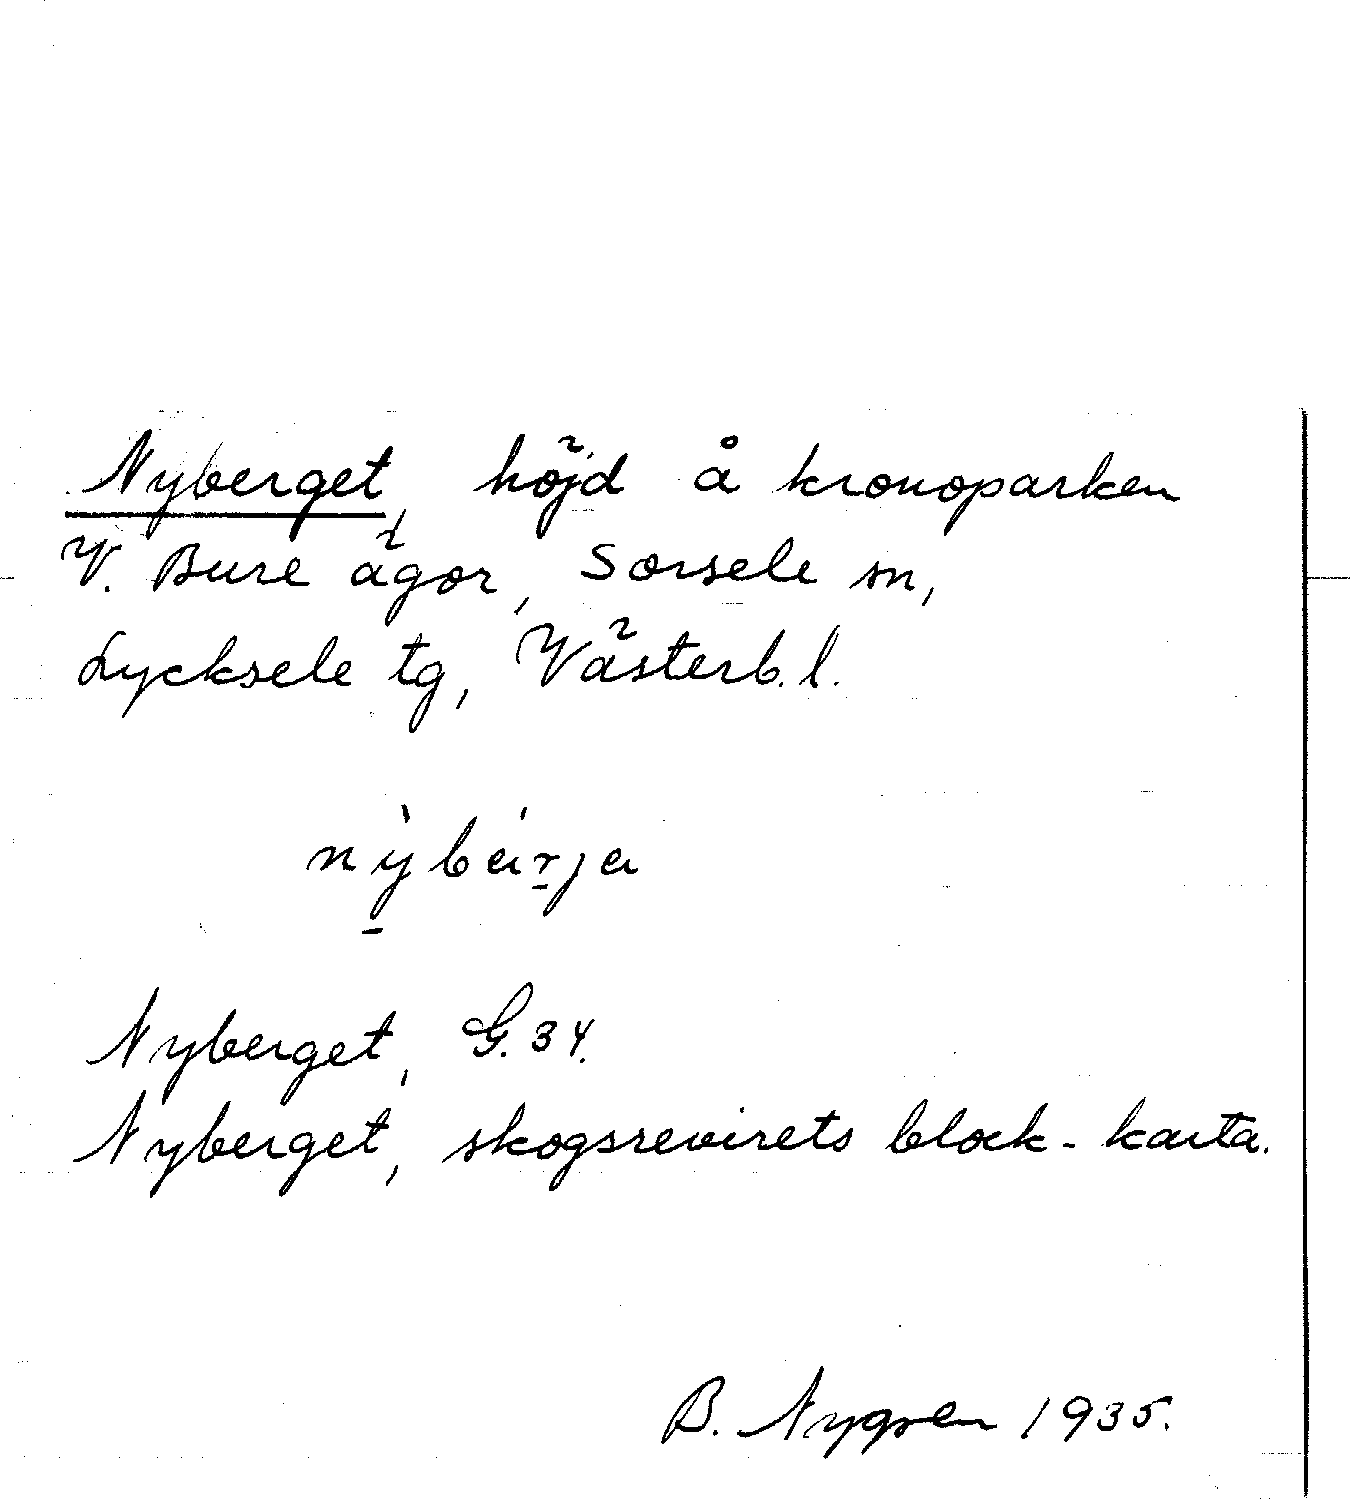 Nyberget, höjd å kronoparken
V. Bure ägor, Sorsele sn,
Lycksele tg, Västerb. l.
nỳbárja
Nyberget, G. 34.
Nyberget, skogsrevirets block-karta.
B. Nygren 1935.